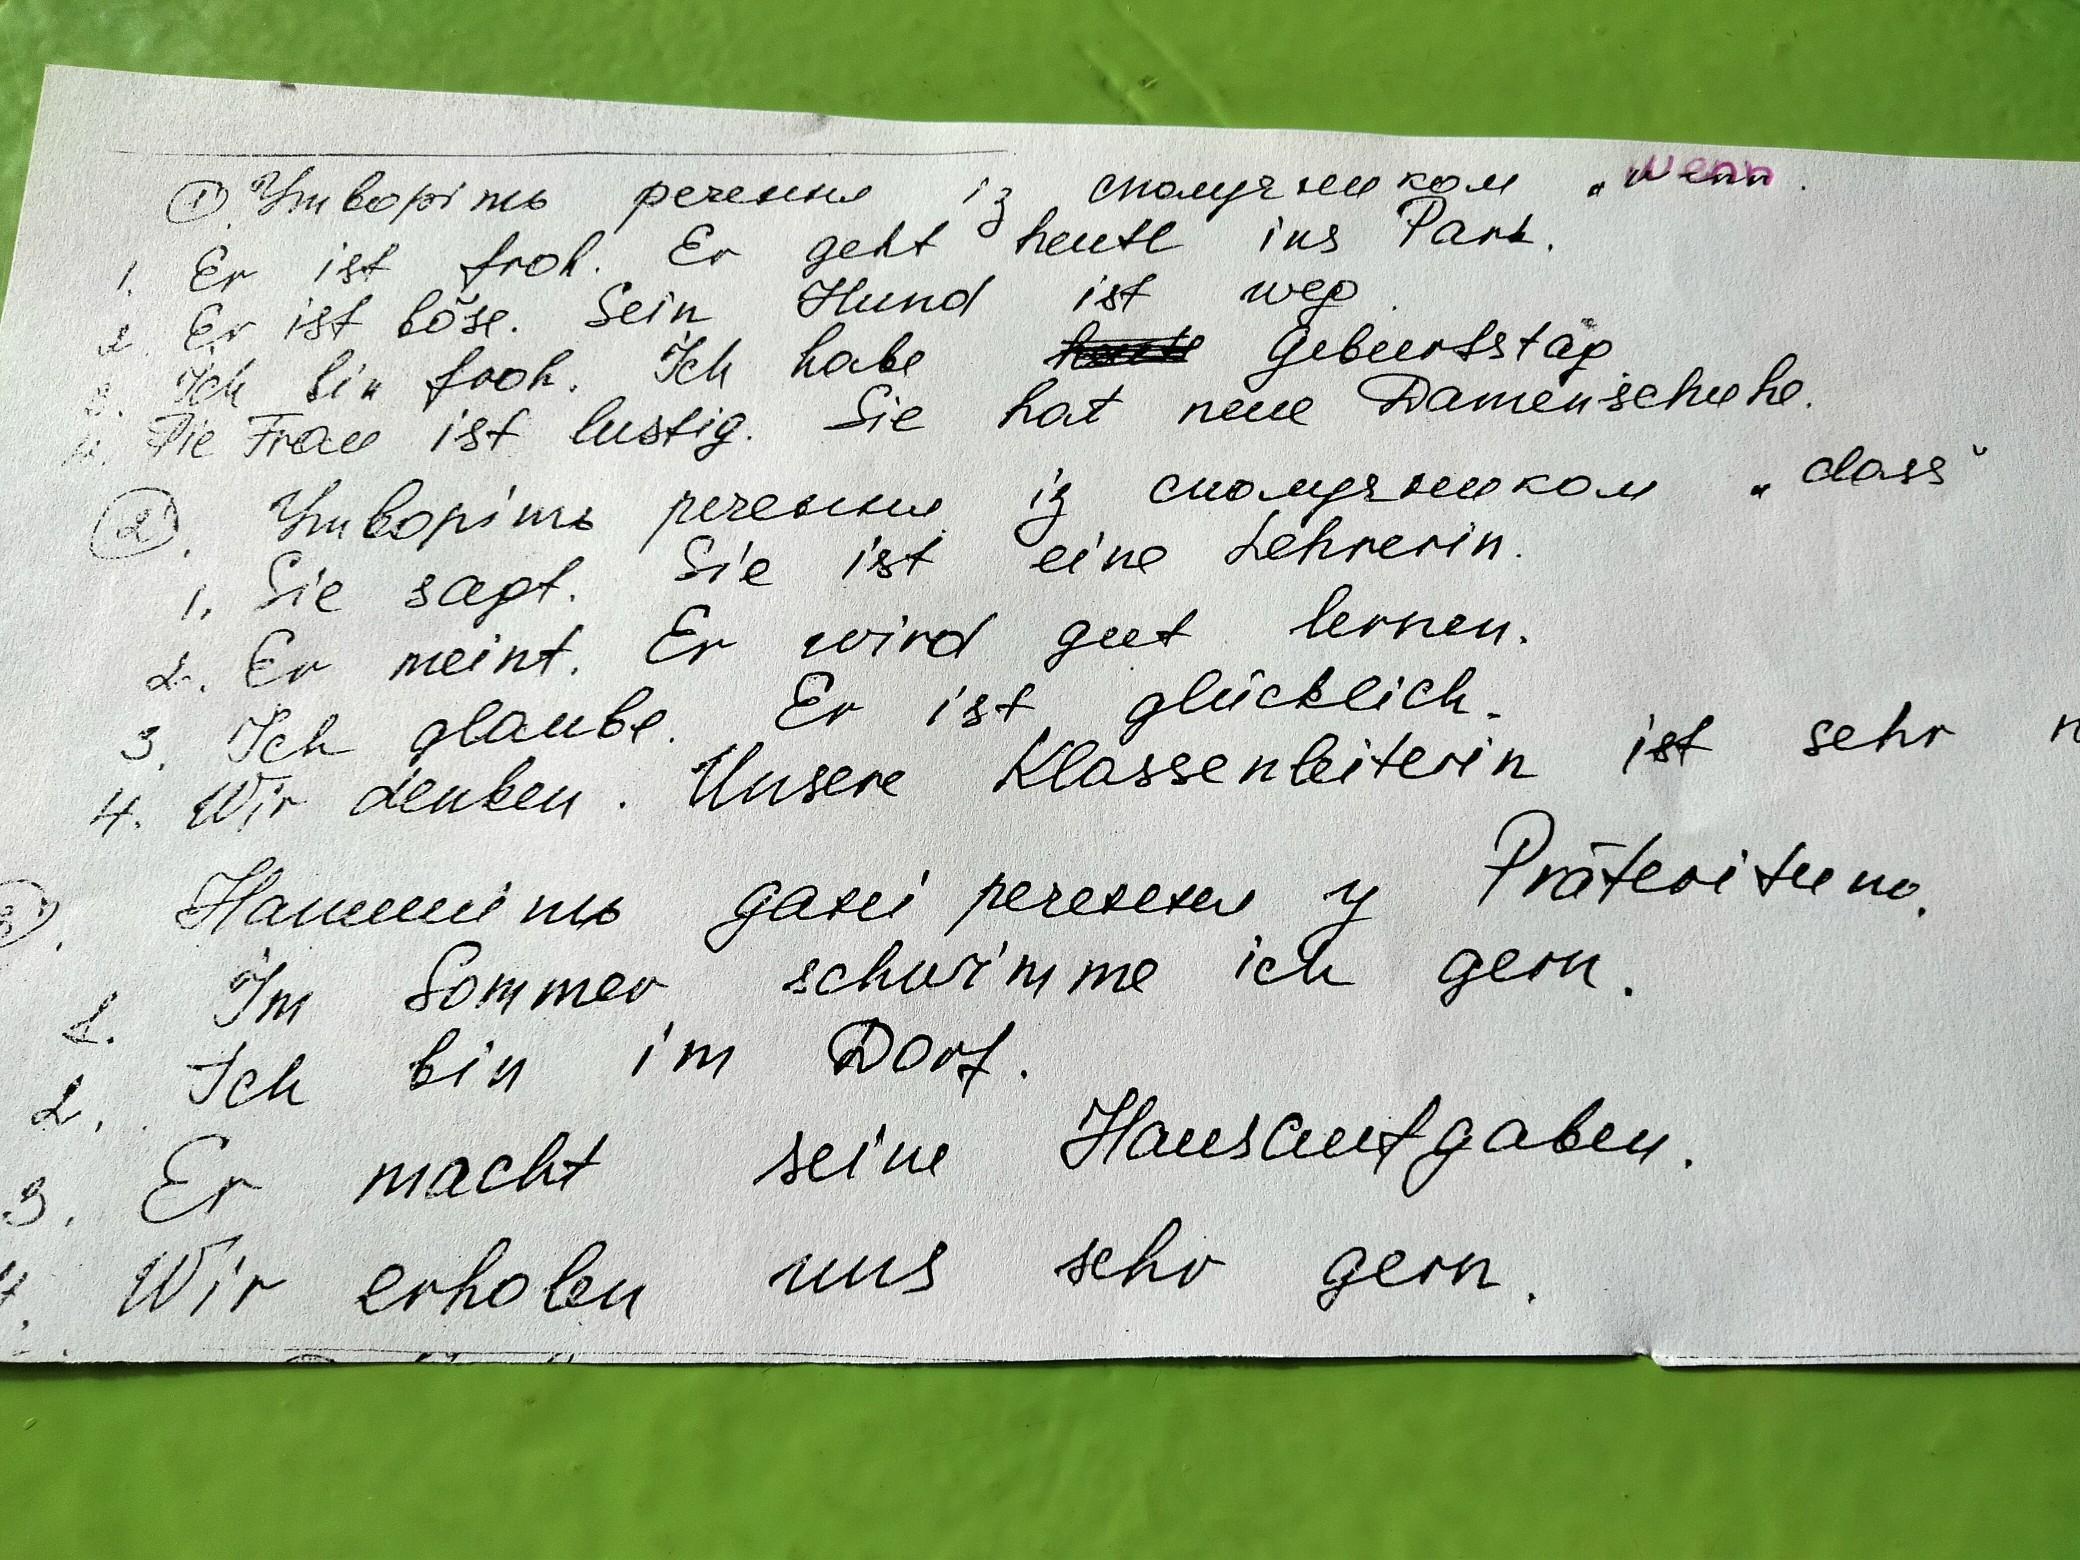 1. Утворіть речення із сполучником „wenn.
1. Er ist froh. Er geht heute ins Park.
2. Er ist böse. Sein Hund ist weg.
3. Ich bin froh. Ich habe Geburtstag
4. Die Frau ist lustig. Sie hat neue Damenschuhe.
2. Утворіть речення із сполучником „dass"
1. Sie sagt. Sie ist eine Lehrerin.
2. Er meint. Er wird gut lernen.
3. Ich glaube. Er ist glücklich.
4. Wir denken. Unsere Klassenleiterin ist sehr
3. Напишіть дані речення у Präteritum.
1. Im Sommer schwimme ich gern.
2. Ich bin im Dorf.
3. Er macht seine Hausaufgaben.
4. Wir erholen uns sehr gern.